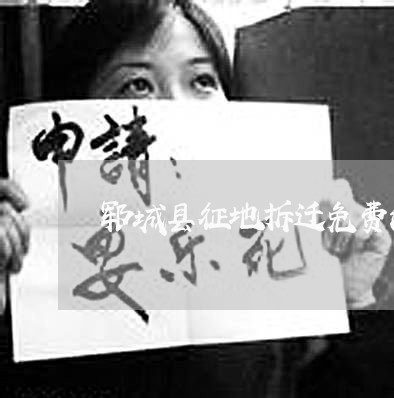 申請：
郓城县征地拆迁免费
安乐死